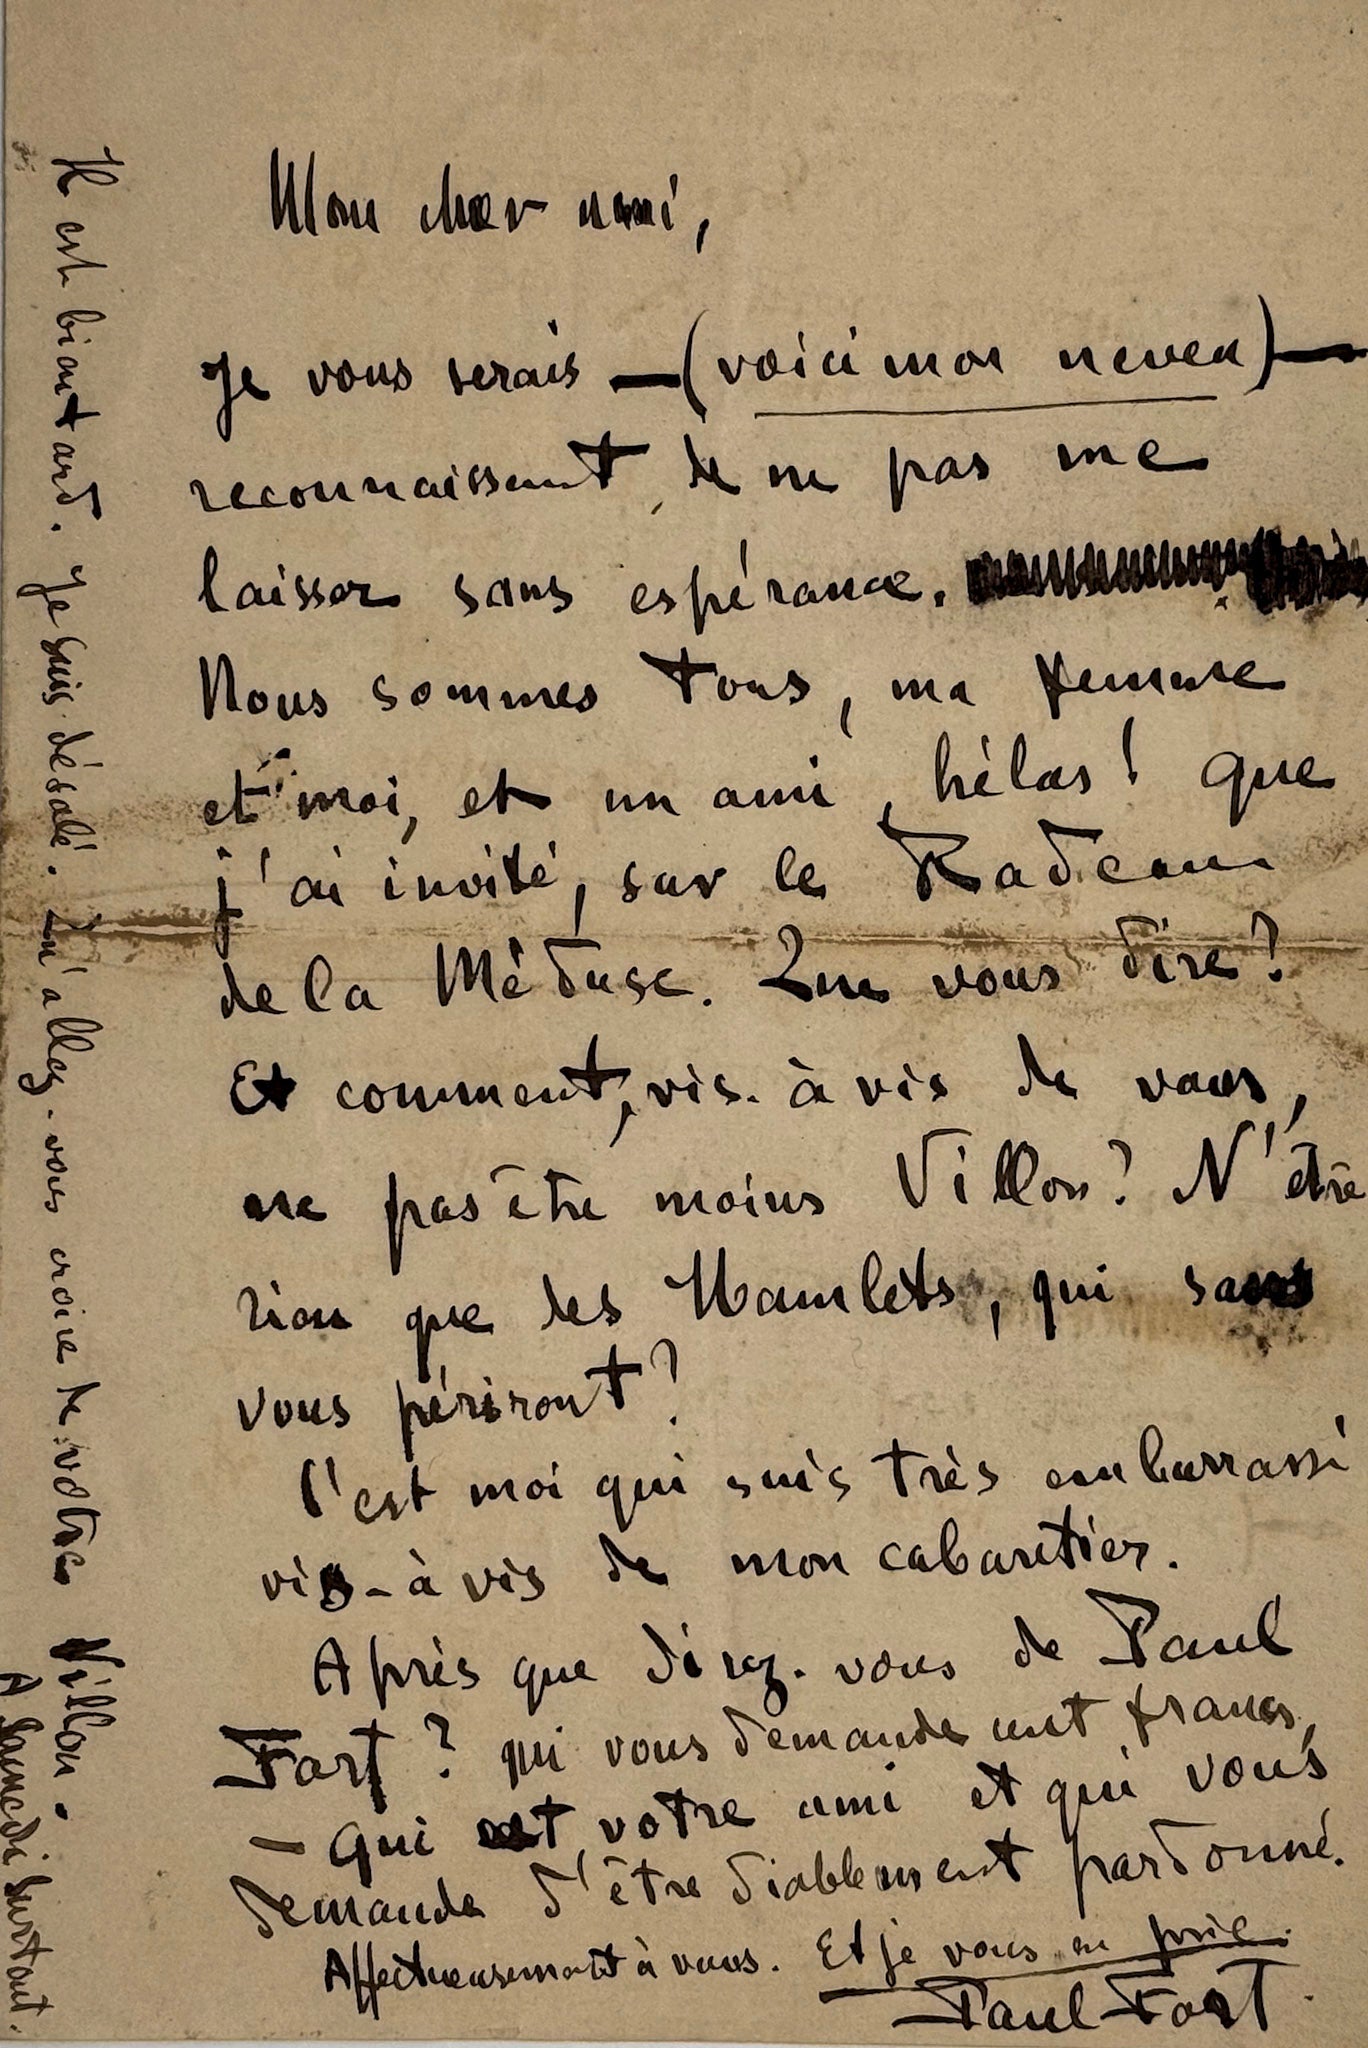 Mon cher ami,
Je vous serais — (voici mon neveu) —
reconnaissant, de ne pas me
laisser sans espérance.
Nous sommes tous, ma femme
et moi, et un ami, hélas! que
j'ai invité, sur le Radeau
de la Méduse. Que vous dire?
Et comment, vis-à vis de vous,
ne pas être moins Villon? N'être
rien que des Hamlets, qui sans
vous périront?
C'est moi qui suis très embarrassé
vis-à vis de mon cabaretier.
Après que direz-vous de Paul
Fort? qui vous demande cent francs,
— qui est votre ami et qui vous
demande d'être diablement pardonné.
Affectueusement à vous. Et je vous en prie.
Paul Fort.
Il est bien tard. Je suis désolé. Qu'allez-vous croire de votre Villon.
A Samedi surtout.